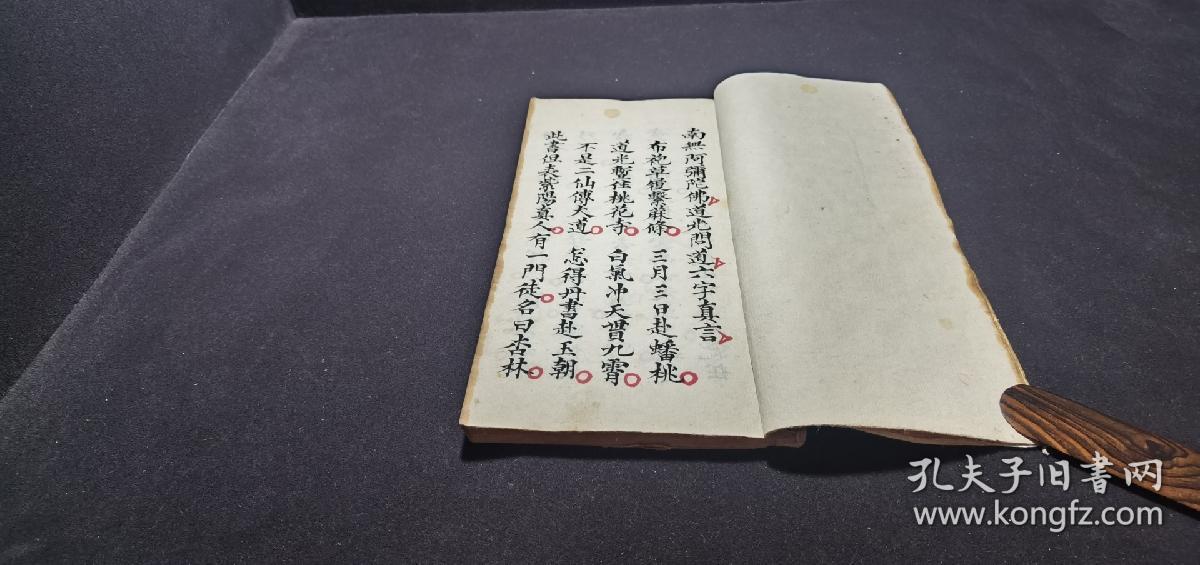 南無阿彌陀佛道北問道六字真言
布袍草履繫蔴條 三月三日赴蟠桃
道北暫往桃花寺 白氣冲天貫九霄
不是二仙傳大道 怎得丹書赴玉朝
此書但表紫陽真人有一門徒名曰杏林
孔夫子旧书网
www.kongfz.com